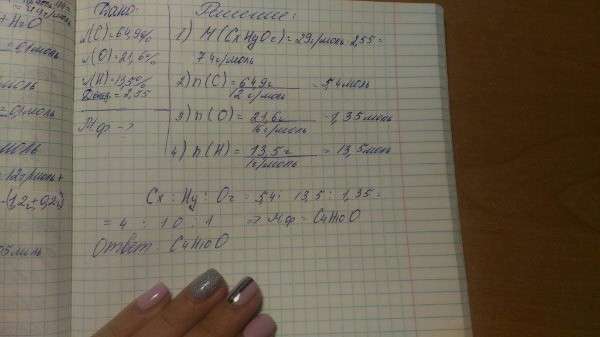 Дано:
ω(C)=64,9%
ω(O)=21,6%
ω(H)=13,5%
Dвозд.=2,55
Мф - ?
Решение:
1) M(CxHyOz)=29г/моль·2,55=
74г/моль
2) n(C)=64,9г/12г/моль=5,4моль
3) n(O)=21,6г/16г/моль=1,35моль
4) n(H)=13,5г/1г/моль=13,5моль
Cx:Hy:Oz=5,4:13,5:1,35=
=4:10:1 => Мф - C4H10O
Ответ C4H10O
+H2O
моль
моль
(1,2+0,2)